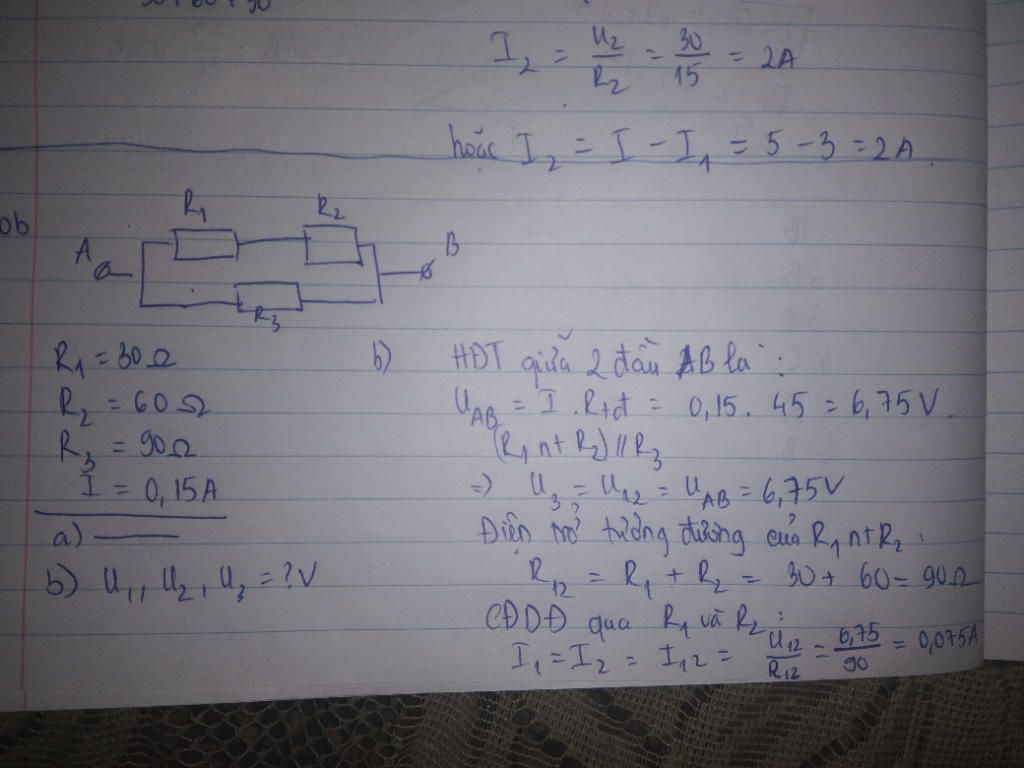 I₂ = U₂/R₂ = 30/15 = 2A
hoặc I₂ = I - I₁ = 5 - 3 = 2A.
R₁ R₂
A B
R₃
R₁ = 30Ω
R₂ = 60Ω
R₃ = 90Ω
I = 0,15A
a)
b) U₁, U₂, U₃ = ? V
b) HĐT giữa 2 đầu AB là:
U_AB = I . Rtđ = 0,15 . 45 = 6,75V.
(R₁ nt R₂) // R₃
=> U₃ = U₁₂ = U_AB = 6,75V
Điện trở tương đương của R₁ nt R₂:
R₁₂ = R₁ + R₂ = 30 + 60 = 90Ω
CĐDĐ qua R₁ và R₂:
I₁ = I₂ = I₁₂ = U₁₂/R₁₂ = 6,75/90 = 0,075A